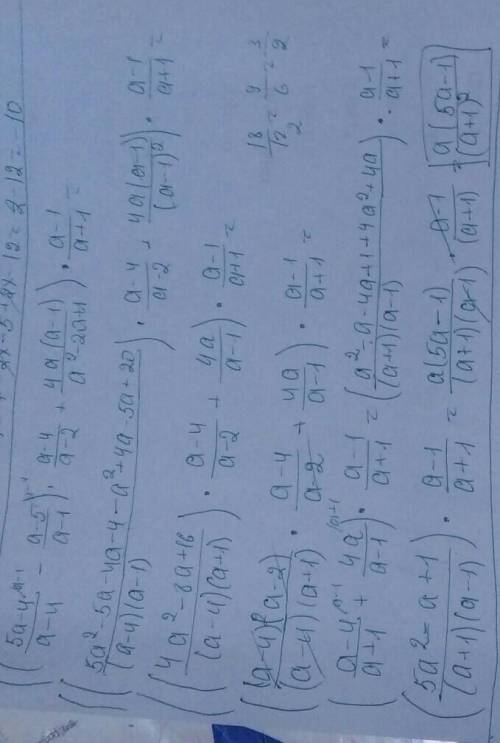 -2x-5+8x-12=2-12=-10
((5a-4/a-4 - a-5/a-1) · a-4/a-2 + 4a(a-1)/a²-2a+1) · a-1/a+1 =
((5a²-5a-4a-4-a²+4a-5a+20/(a-4)(a-1)) · a-4/a-2 + 4a(a-1)/(a-1)²) · a-1/a+1 =
((4a²-8a+16/(a-4)(a+1)) · a-4/a-2 + 4a/a-1) · a-1/a+1 =
18/12 = 9/6 = 3/2
(((a-4)(a-2)/(a-4)(a+1)) · a-4/a-2 + 4a/a-1) · a-1/a+1 =
(a-4/a+1 + 4a/a-1) · a-1/a+1 = (a²-a-4a+1+4a²+4a/(a+1)(a-1)) · a-1/a+1 =
(5a²-a+1/(a+1)(a-1)) · a-1/a+1 = a(5a-1)/(a+1)(a-1) · a-1/(a+1) = a(5a-1)/(a+1)²